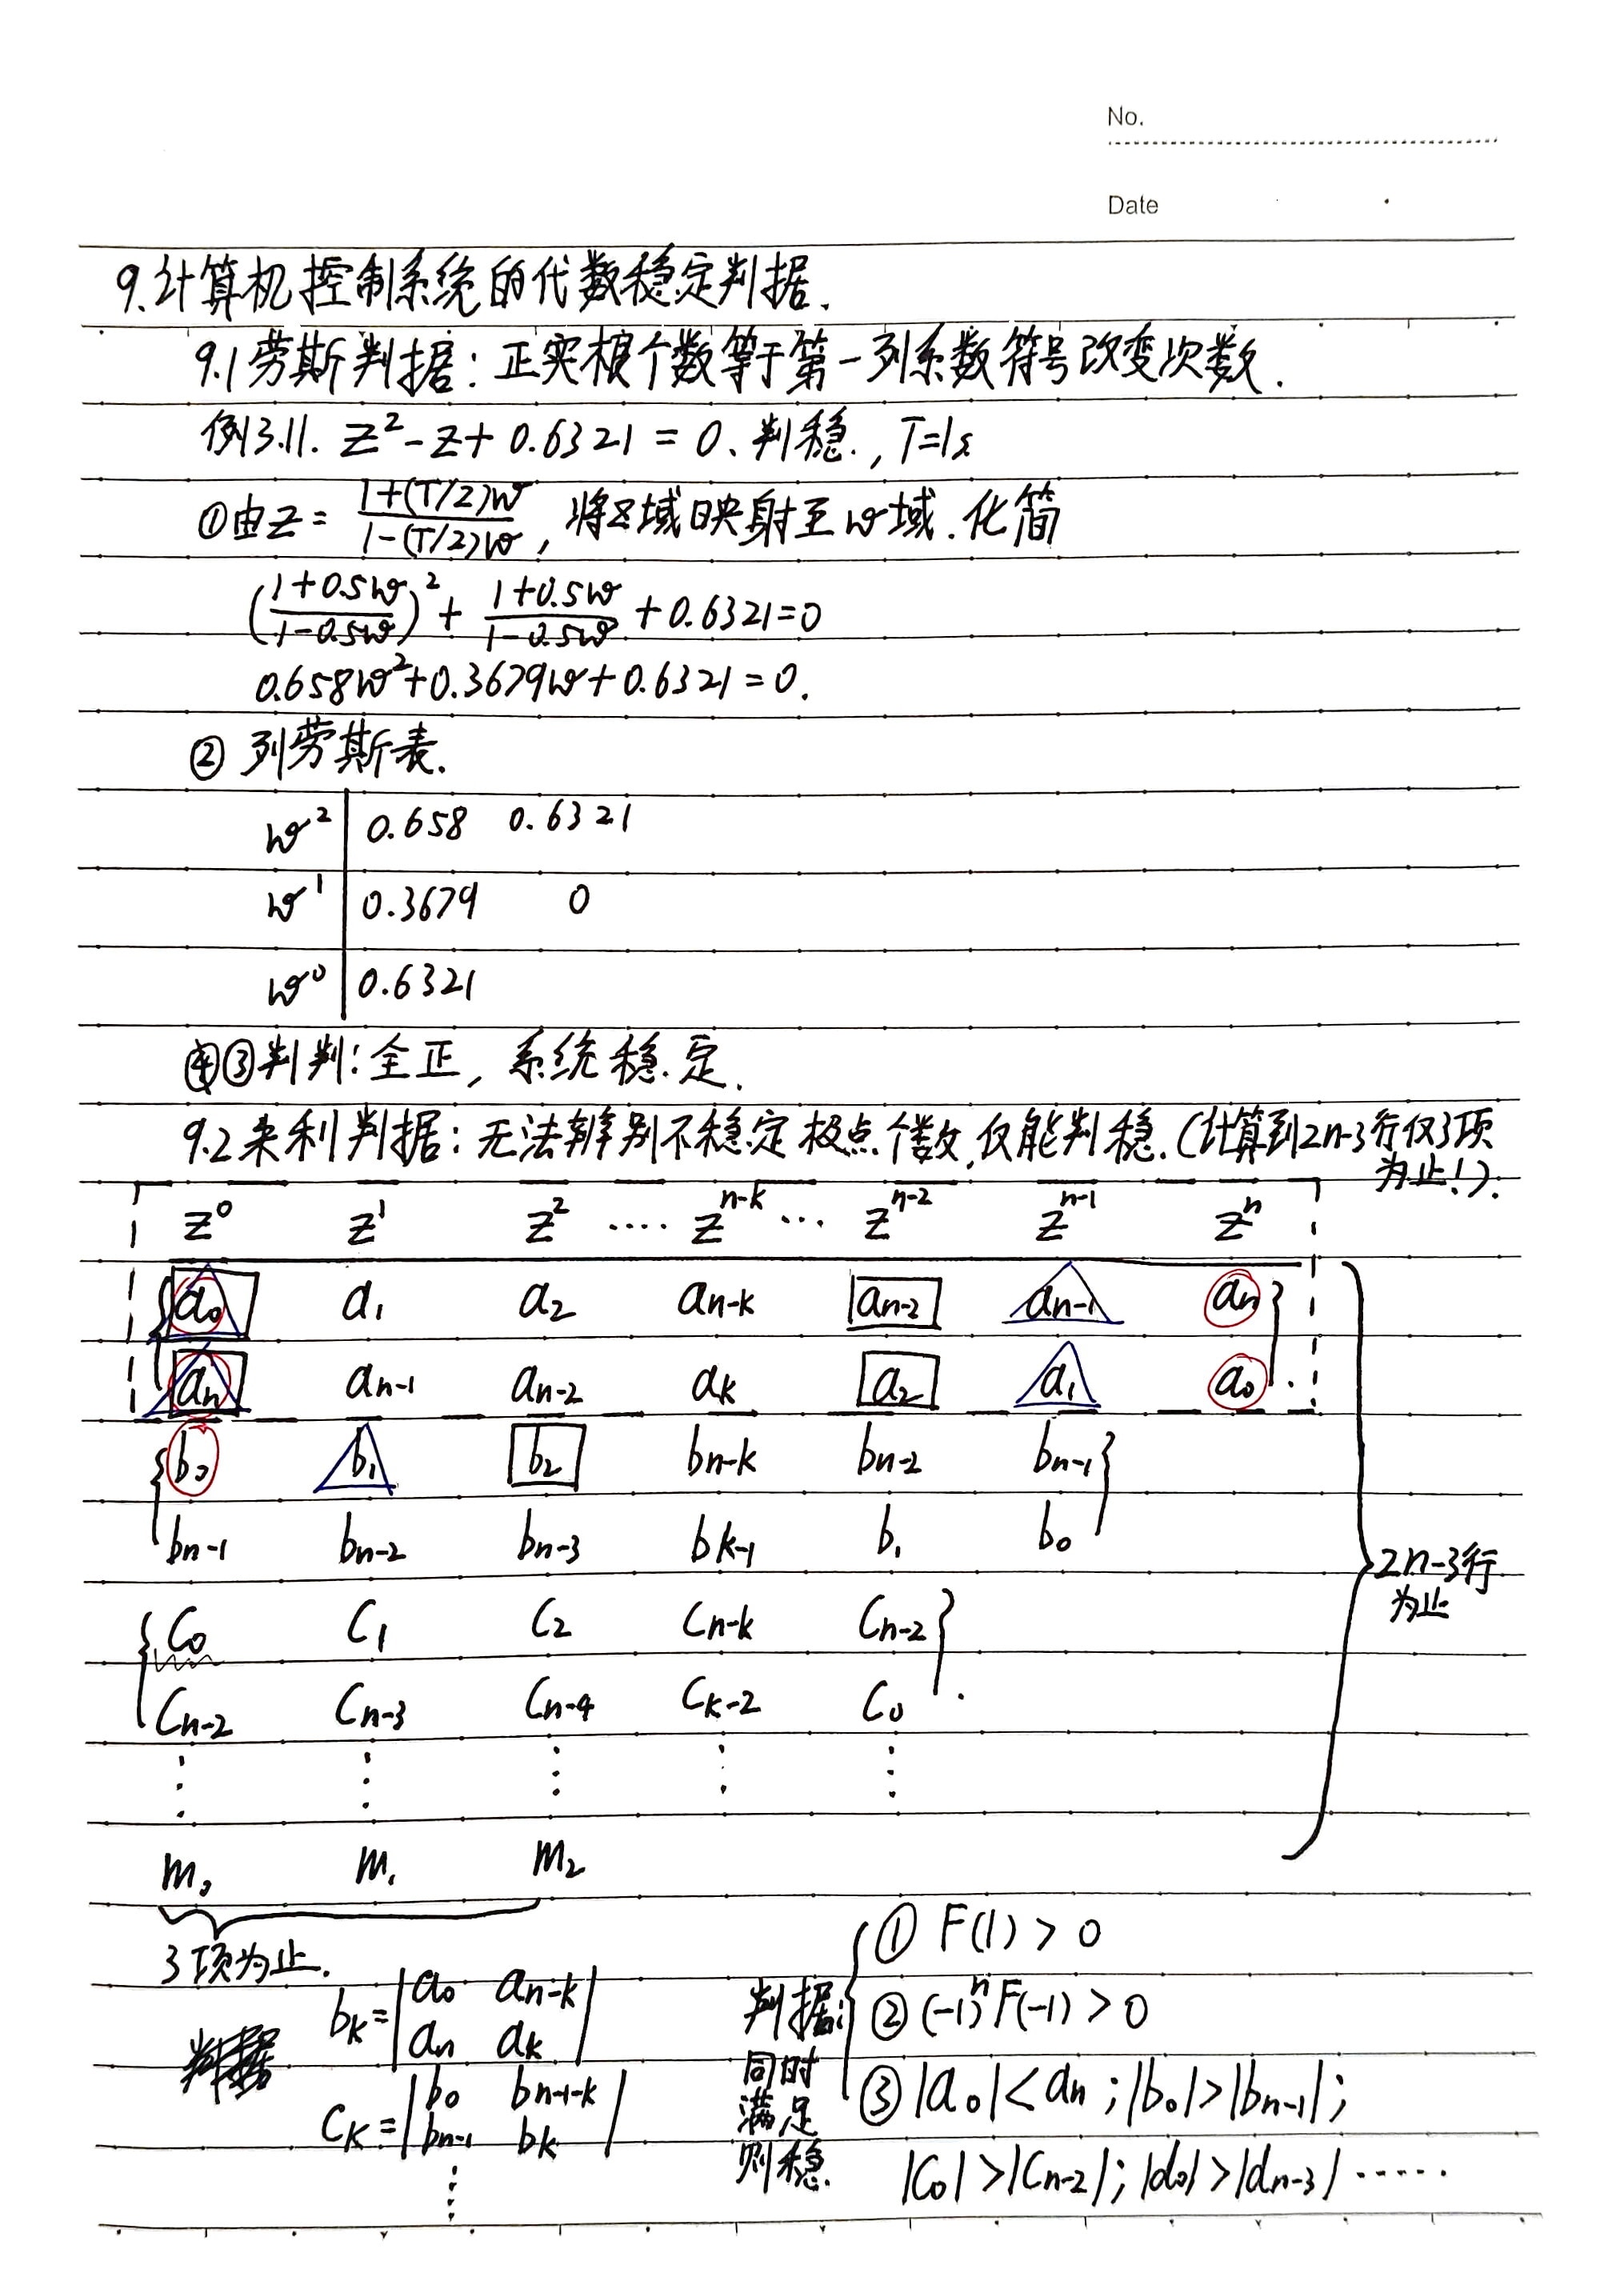 No.
Date
9.计算机控制系统的代数稳定判据.
9.1 劳斯判据: 正实根个数等于第一列系数符号改变次数.
例3.11. z² - z + 0.6321 = 0、判稳., T=1s
①由z = (1+(T/2)w)/(1-(T/2)w), 将z域映射至w域. 化简
((1+0.5w)/(1-0.5w))² + (1+0.5w)/(1-0.5w) + 0.6321=0
0.658w²+0.3679w+0.6321=0.
② 列劳斯表.
w² | 0.658 0.6321
w¹ | 0.3679 0
w⁰ | 0.6321
④③判判: 全正, 系统稳定.
9.2 朱利判据: 无法辨别不稳定极点个数,仅能判稳.(计算到2n-3行仅3项
为止!).
z⁰ z¹ z² ···· zⁿ⁻ᵏ ··· zⁿ⁻² zⁿ⁻¹ zⁿ
a₀ a₁ a₂ aₙ₋ₖ aₙ₋₂ aₙ₋₁ aₙ
aₙ aₙ₋₁ aₙ₋₂ aₖ a₂ a₁ a₀
b₀ b₁ b₂ bₙ₋ₖ bₙ₋₂ bₙ₋₁
bₙ₋₁ bₙ₋₂ bₙ₋₃ bₖ₋₁ b₁ b₀
2n-3行
为止
c₀ c₁ c₂ cₙ₋ₖ cₙ₋₂
cₙ₋₂ cₙ₋₃ cₙ₋₄ cₖ₋₂ c₀
⋮ ⋮ ⋮ ⋮ ⋮
m₀ m₁ m₂
3项为止.
bₖ = |a₀ aₙ₋ₖ|
|aₙ aₖ|
判据
cₖ = |b₀ bₙ₋₁₋ₖ|
|bₙ₋₁ bₖ|
⋮
判据:
同时
满足
则稳.
① F(1) > 0
② (-1)ⁿF(-1) > 0
③ |a₀| < aₙ ; |b₀| > |bₙ₋₁| ;
|c₀| > |cₙ₋₂| ; |d₀| > |dₙ₋₃| ······